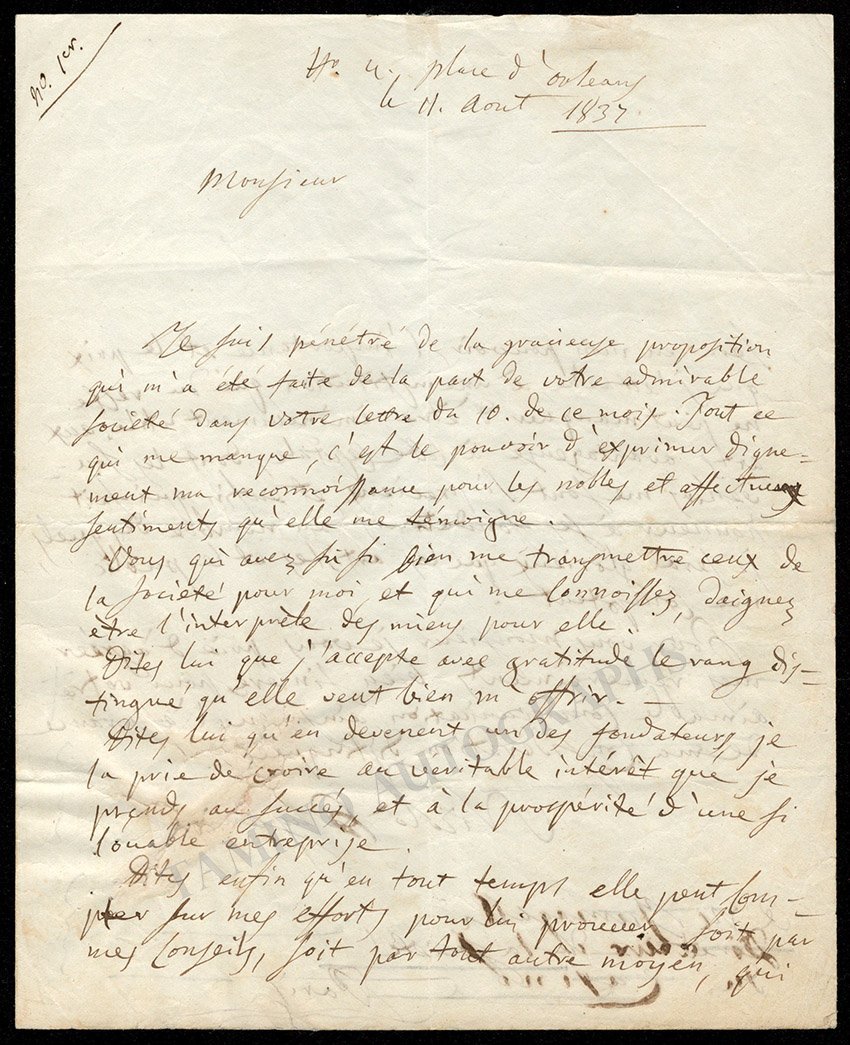 no. 1er.
No. 4. place d'orleans
le 11. Aout 1837.
Monsieur
Je suis pénétré de la gracieuse proposition
qui m'a été faite de la part de votre admirable
société dans votre lettre du 10. de ce mois. Tout ce
qui me manque, c'est le pouvoir d'exprimer digne-
ment ma reconnoissance pour les nobles et affectueux
sentiments qu'elle me témoigne.
Vous qui avez sû si bien me transmettre ceux de
la société pour moi, et qui me connoissez, daignez
être l'interprète des miens pour elle.
Dites lui que j'accepte avec gratitude le rang dis-
tingué qu'elle veut bien m'offrir. –
Dites lui qu'en devenent un des fondateurs, je
la prie de croire au veritable intérêt que je
prends au succés, et à la prospérité d'une si
louable entreprise.
Dites enfin qu'en tout temps elle peut com-
pter sur mes efforts pour lui prouver soit par
mes conseils, soit par tout autre moyen, qui
TAMINO AUTOGRAPHS